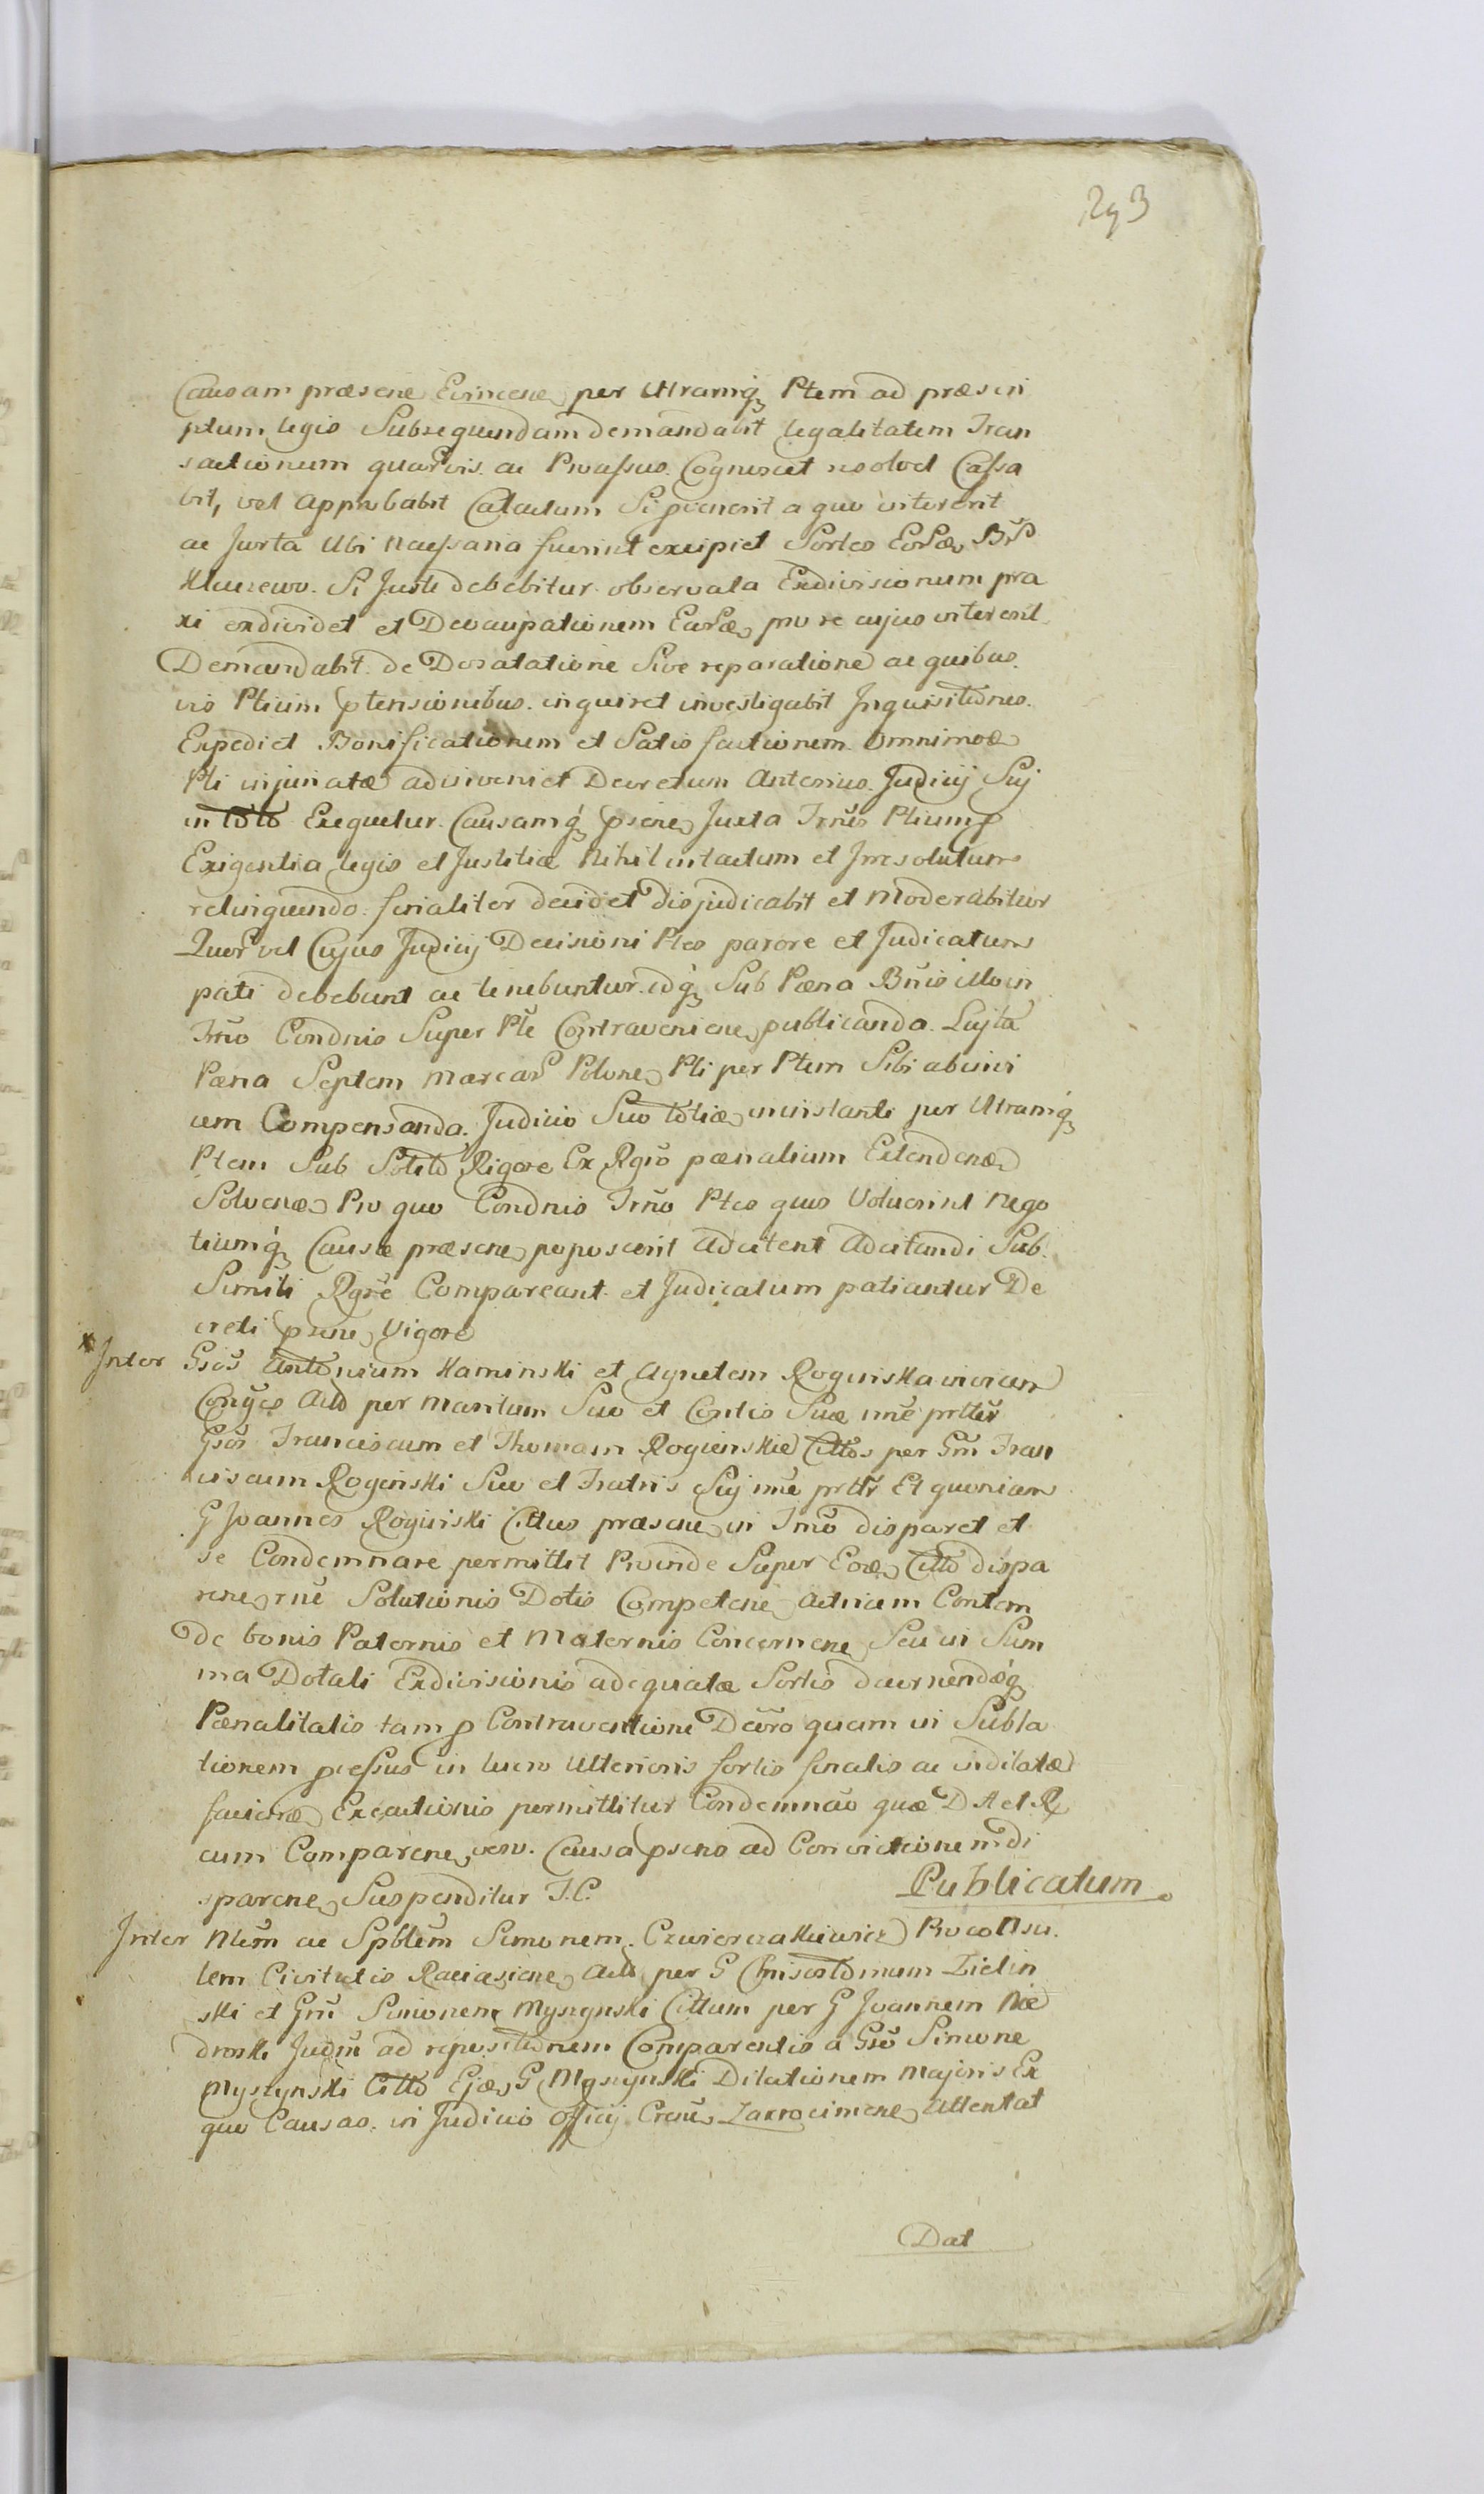 293
Causam præsene Evincene per Utramq₃ Ptem ad præscri
ptum legis Subsequendam demandabit legalitatem Tran
sactionum quarvis. ac Processus. Cognoscet resolvet Cassa
bit, vel approbabit Calculum Si prænerit a quo interent
ac Juxta Ubi necessaria fuerint excipiet Sortes
Kluczewo. Si Juste debebitur observata Exdivisionum pra
xi exdividet et Deoccupationem pro re cujus interent
Demandabit. de Desolatione Sive reparatione ac quibus
vis Ptium ptensionibus. inquiret investigabit Inquisitiones.
Expediet Bonificationem et Satis factionem Omnimodæ
Pti injuriatæ adinveniet Decretum Anterius. Judicij Suj
in toto Exequetur. Causamq₃ psene Juxta Trnos Ptium p
Exigentia legis et Justitiæ Nihil intactum et Irresolutum
relinquendo. finaliter decidet disjudicabit et Moderabitur
Quor vel Cujus Judicij Decisioni Ptes parere et Judicatum
pati debebunt ac tenebuntur. idq₃ Sub Pæna Bnis illo in
Trno Condnis Super Pte Contraveniene publicanda. Lujta
Pæna Septem Marcar Polone Pti per Ptem Sibi abinvi
cem Compensanda. Judicio Suo totiæ in instanti per Utramq₃
Ptem Sub Solito Rigore Ex Rgro pænalium Extendenæ
Solvenæ Pro quo Condnis Trno Ptes quos Voluerint Nego
tiumq₃ Causæ præsene poposcerit Adcitent Adcitandi Sub.
Simili Rgre Compareant et Judicatum patiantur De
creti psene Vigore
Inter Gsos Antonium Kaminski et Agnetem Roginska vivicem
Conjges Act per Maritum Suo et Contis Suæ nne prtter
Gsos Franciscum et Thomam Roginskie Cittos per Gm Fran
ciscum Roginski Suo et Fratris Suj nne prttr Et quoniam
G Joannes Roginski Cittus præsene in Trno disparet et
se Condemnare permittit Proinde Super Eoæ Citto dispa
rene rne Solutionis Dotis Competene Actricem Contem
De bonis Paternis et Maternis Concernene Seu in Sum
ma Dotali Exdivisionis adequatæ Sortis decernendæq₃
Pænalitatis tam p Contraventione Decro quam in Subla
tionem pcessus in lucro Ulterioris sortis finalis ac indilatæ
faciene Executionis permittitur Condemnao quæ D A et R
cum Comparene vero. Causa psens ad Convictionem di
sparene Suspenditur T.C.
Publicatum
Inter Nlem ac Spblem Simonem Czwierczakiewicz Proconsu.
lem Civitatis Raciasiene Act per G Chrisostomum Zielin
ski et Gm Simonem Myszynski Cittum per G Joannem Nie
droski Judm ad repositionem Comparentis a Gso Simone
Myszynski Citto Ejæ G Myszynski Dilationem Majoris Ex
quo Causas. in Judicio Officij Crene Zakrocimene Attentat
Dat